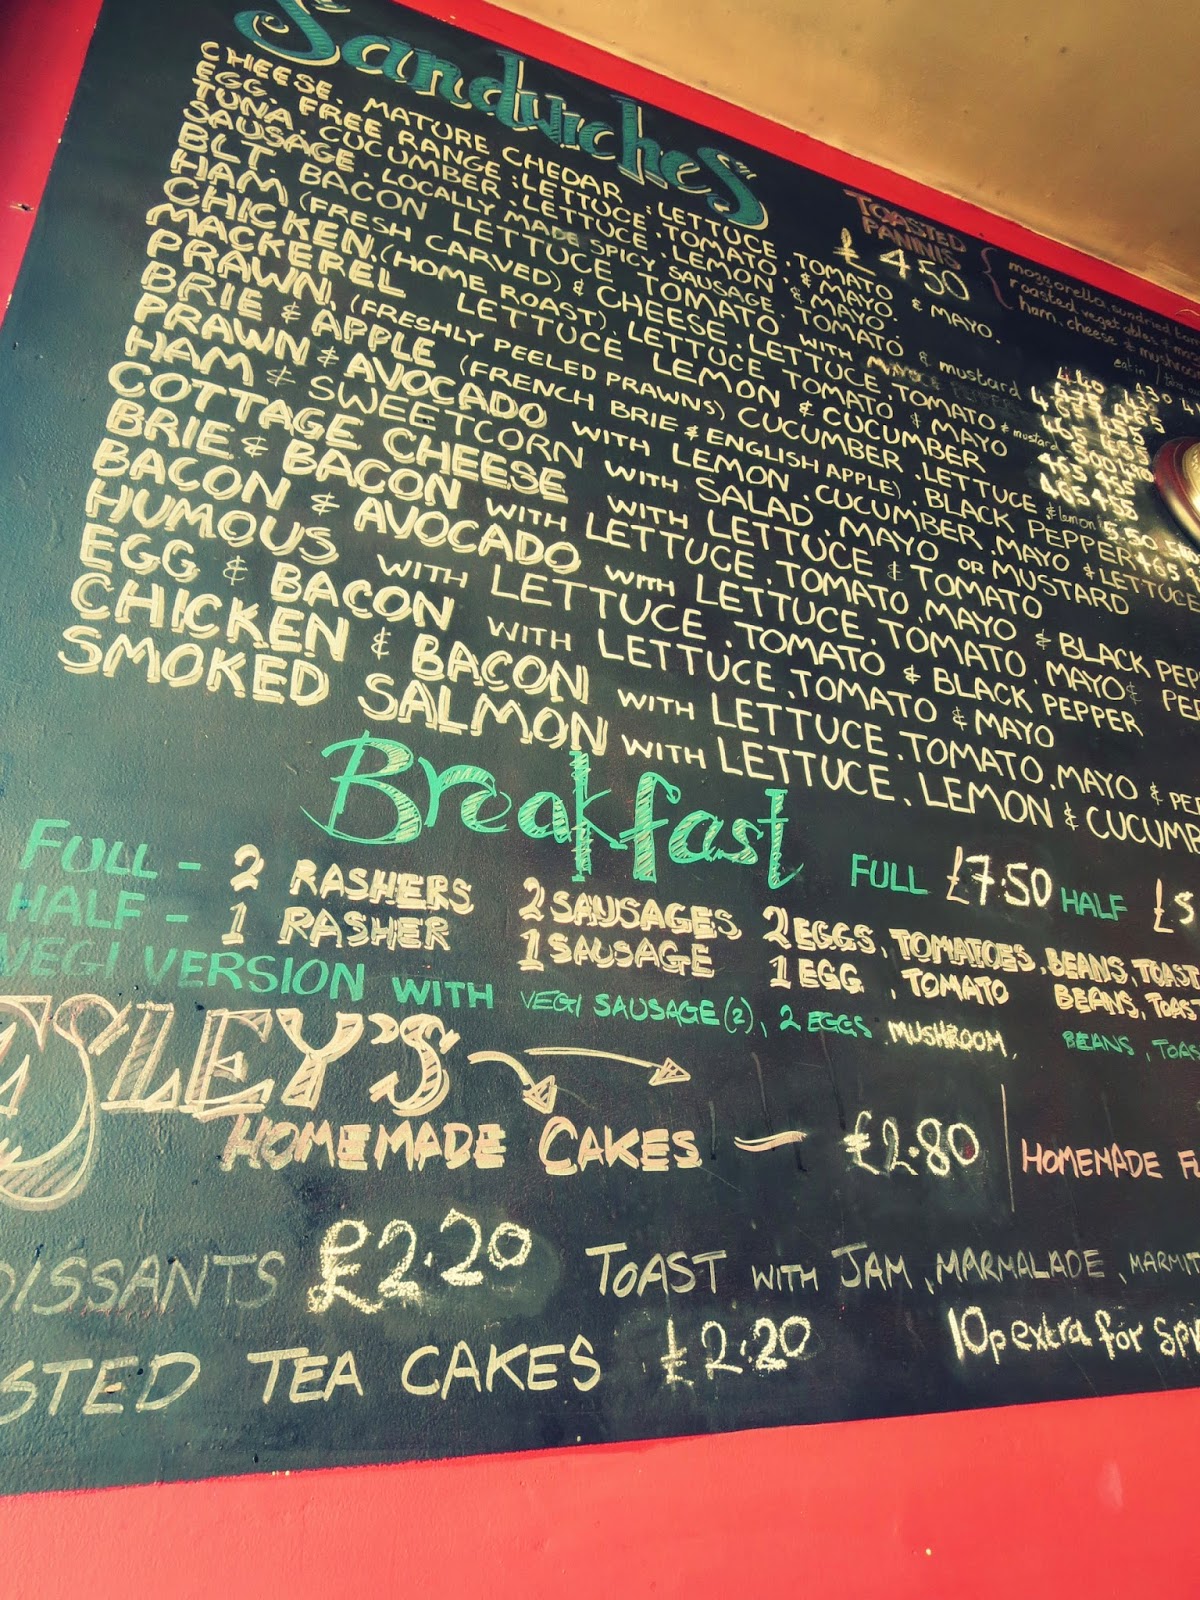 Sandwiches
CHEESE. MATURE CHEDAR : LETTUCE . TOMATO & MAYO.
EGG. FREE RANGE : LETTUCE . TOMATO & MAYO.
TUNA. CUCUMBER . LETTUCE . LEMON & MAYO.
SAUSAGE . LOCALLY MADE SPICY SAUSAGE . TOMATO & mustard
BLT. BACON LETTUCE TOMATO WITH
HAM, (FRESH CARVED) & CHEESE . LETTUCE . TOMATO & mustard
CHICKEN, (HOME ROAST). LETTUCE TOMATO & MAYO
MACKEREL LETTUCE LEMON & CUCUMBER
PRAWN, (FRESHLY PEELED PRAWNS) CUCUMBER . LETTUCE & lemon
BRIE & APPLE (FRENCH BRIE & ENGLISH APPLE) . BLACK PEPPER
PRAWN & AVOCADO WITH LEMON . CUCUMBER . MAYO & LETTUCE
HAM & SWEETCORN WITH SALAD . MAYO OR MUSTARD
COTTAGE CHEESE WITH LETTUCE & TOMATO
BRIE & BACON WITH LETTUCE . TOMATO . MAYO & BLACK PEP
BACON & AVOCADO WITH LETTUCE . TOMATO . MAYO &
HUMOUS WITH LETTUCE . TOMATO & BLACK PEPPER
EGG & BACON WITH LETTUCE . TOMATO & MAYO
CHICKEN & BACON WITH LETTUCE . TOMATO . MAYO &
SMOKED SALMON WITH LETTUCE . LEMON & CUCUMB
TOASTED
PANINIS
£4.50
mozzarella, sundried
roasted vegetables &
ham, cheese & mushroo
eat in /
Breakfast
FULL £7.50 HALF
FULL - 2 RASHERS 2 SAUSAGES 2 EGGS, TOMATOES, BEANS, TOAST
HALF - 1 RASHER 1 SAUSAGE 1 EGG , TOMATO BEANS, TOAST
VEGI VERSION WITH VEGI SAUSAGE (2), 2 EGGS MUSHROOM, BEANS, TOAS
SLEY'S
HOMEMADE CAKES — £2.80
HOMEMADE
OISSANTS £2.20 TOAST WITH JAM, MARMALADE, MARMIT
STED TEA CAKES £2.20 10p extra for